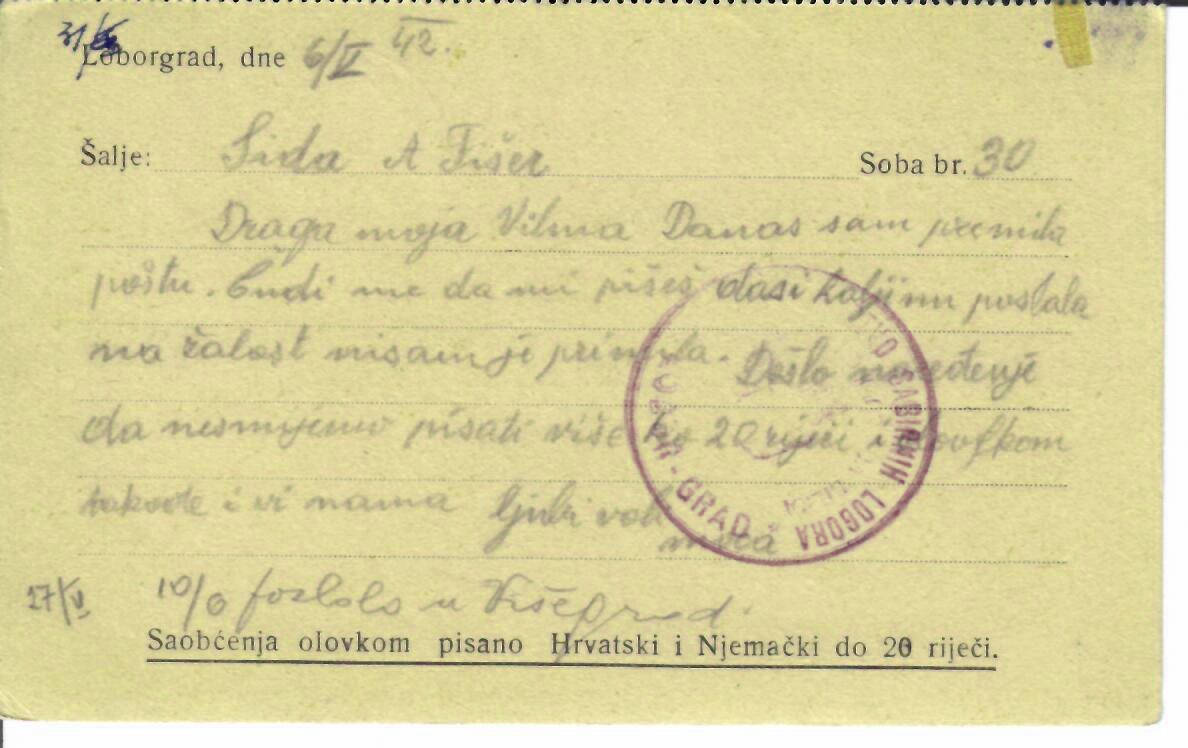 31/
Loborgrad, dne 6/V 42.
Šalje: Sida A Fišer Soba br. 30
Draga moja Vilma Danas sam primila
poštu. Čudi me da mi pišeš dasi poslala
na žalost nisam je primila. Došlo naređenje
da nesmijemo pisati više ko 20 riječi i olovkom
takođe i vi nama ljubi voli
SABIRNIH LOGORA
GRAD
27/V 10/6 poslolo u Višegrad.
Saobćenja olovkom pisano Hrvatski i Njemački do 20 riječi.